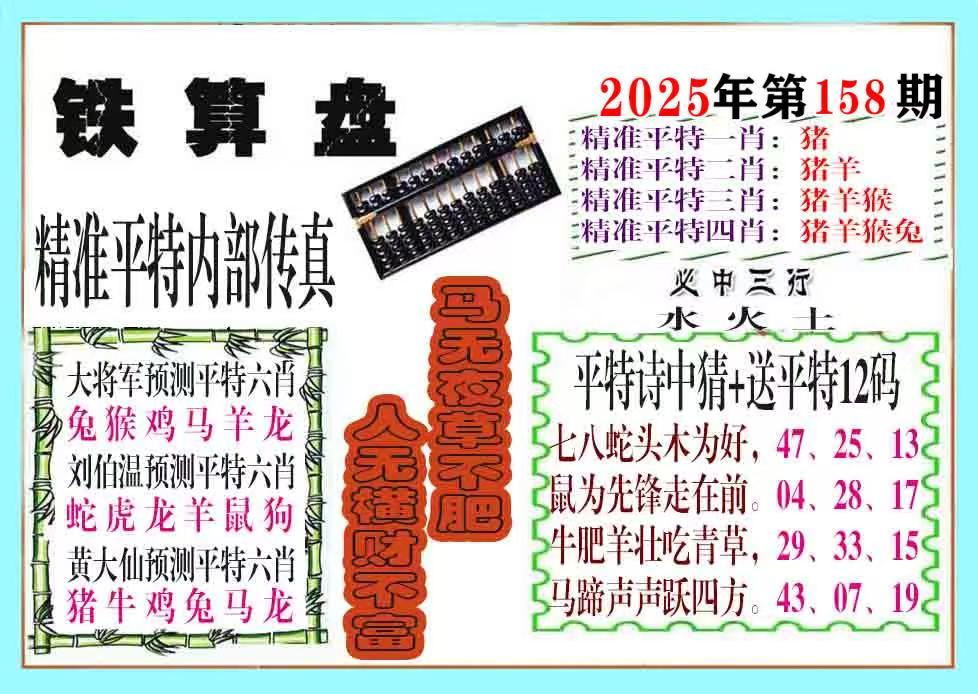 铁算盘
2025年第158期
精准平特一肖：猪
精准平特二肖：猪羊
精准平特三肖：猪羊猴
精准平特四肖：猪羊猴兔
精准平特内部传真
必中三行
水火土
马无夜草不肥
人无横财不富
大将军预测平特六肖
兔猴鸡马羊龙
刘伯温预测平特六肖
蛇虎龙羊鼠狗
黄大仙预测平特六肖
猪牛鸡兔马龙
平特诗中猜+送平特12码
七八蛇头木为好，47、25、13
鼠为先锋走在前。04、28、17
牛肥羊壮吃青草，29、33、15
马蹄声声跃四方。43、07、19